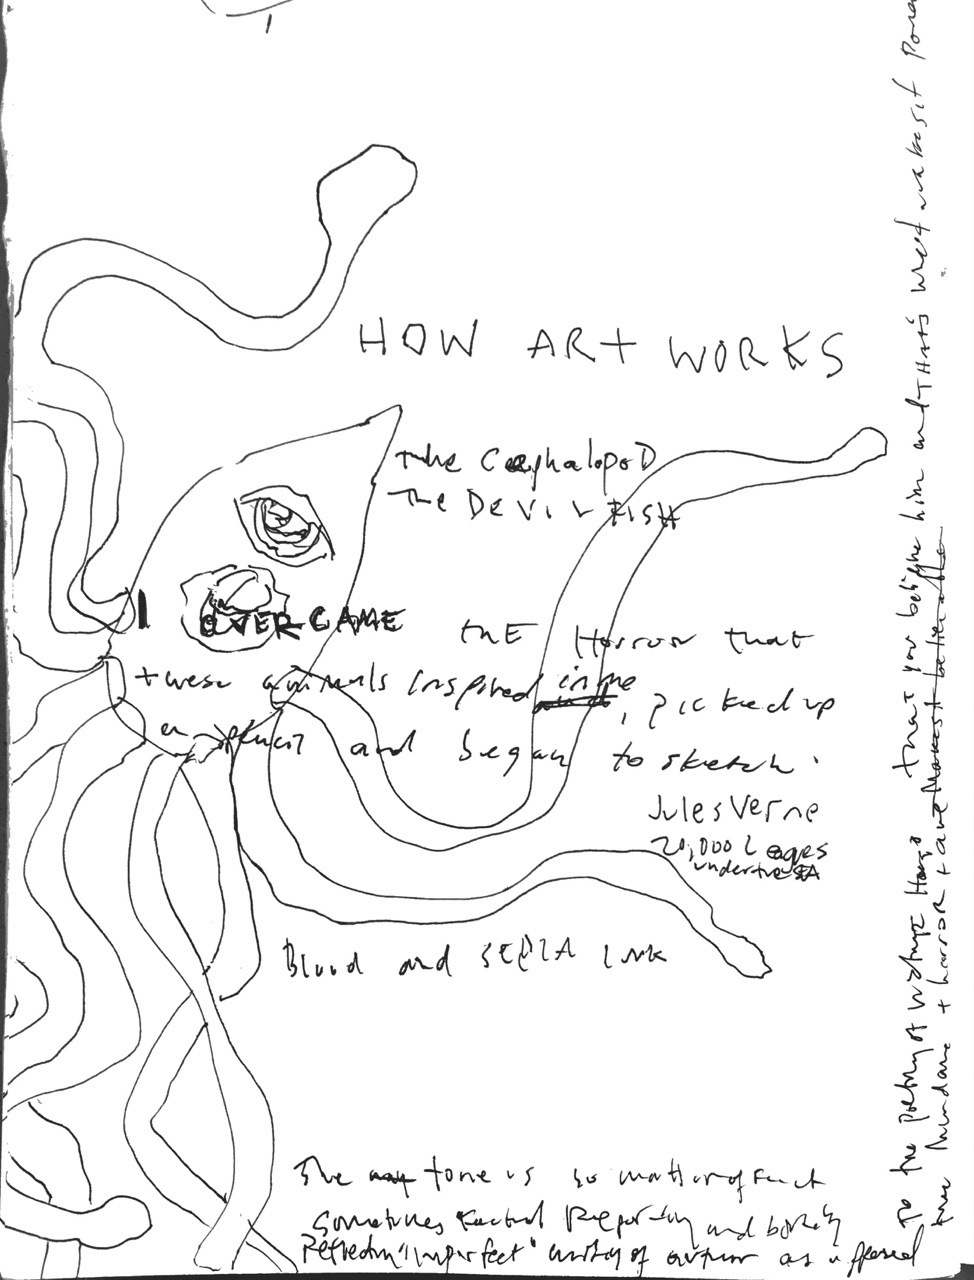 HOW ART WORKS
the Cephalopod
The DEVIL FISH
I OVERCAME the Horror that
these animals inspired in me, picked up
a pencil and began to sketch.
Jules Verne
20,000 Leages
under the SEA
Blood and SEPIA INK
The tone is so matter of fact
sometimes factual Reporting and
"imperfect" writing of author as
To the poetry of Victor Hugo that you him and THAT is what makes it
the Mundane + horror +